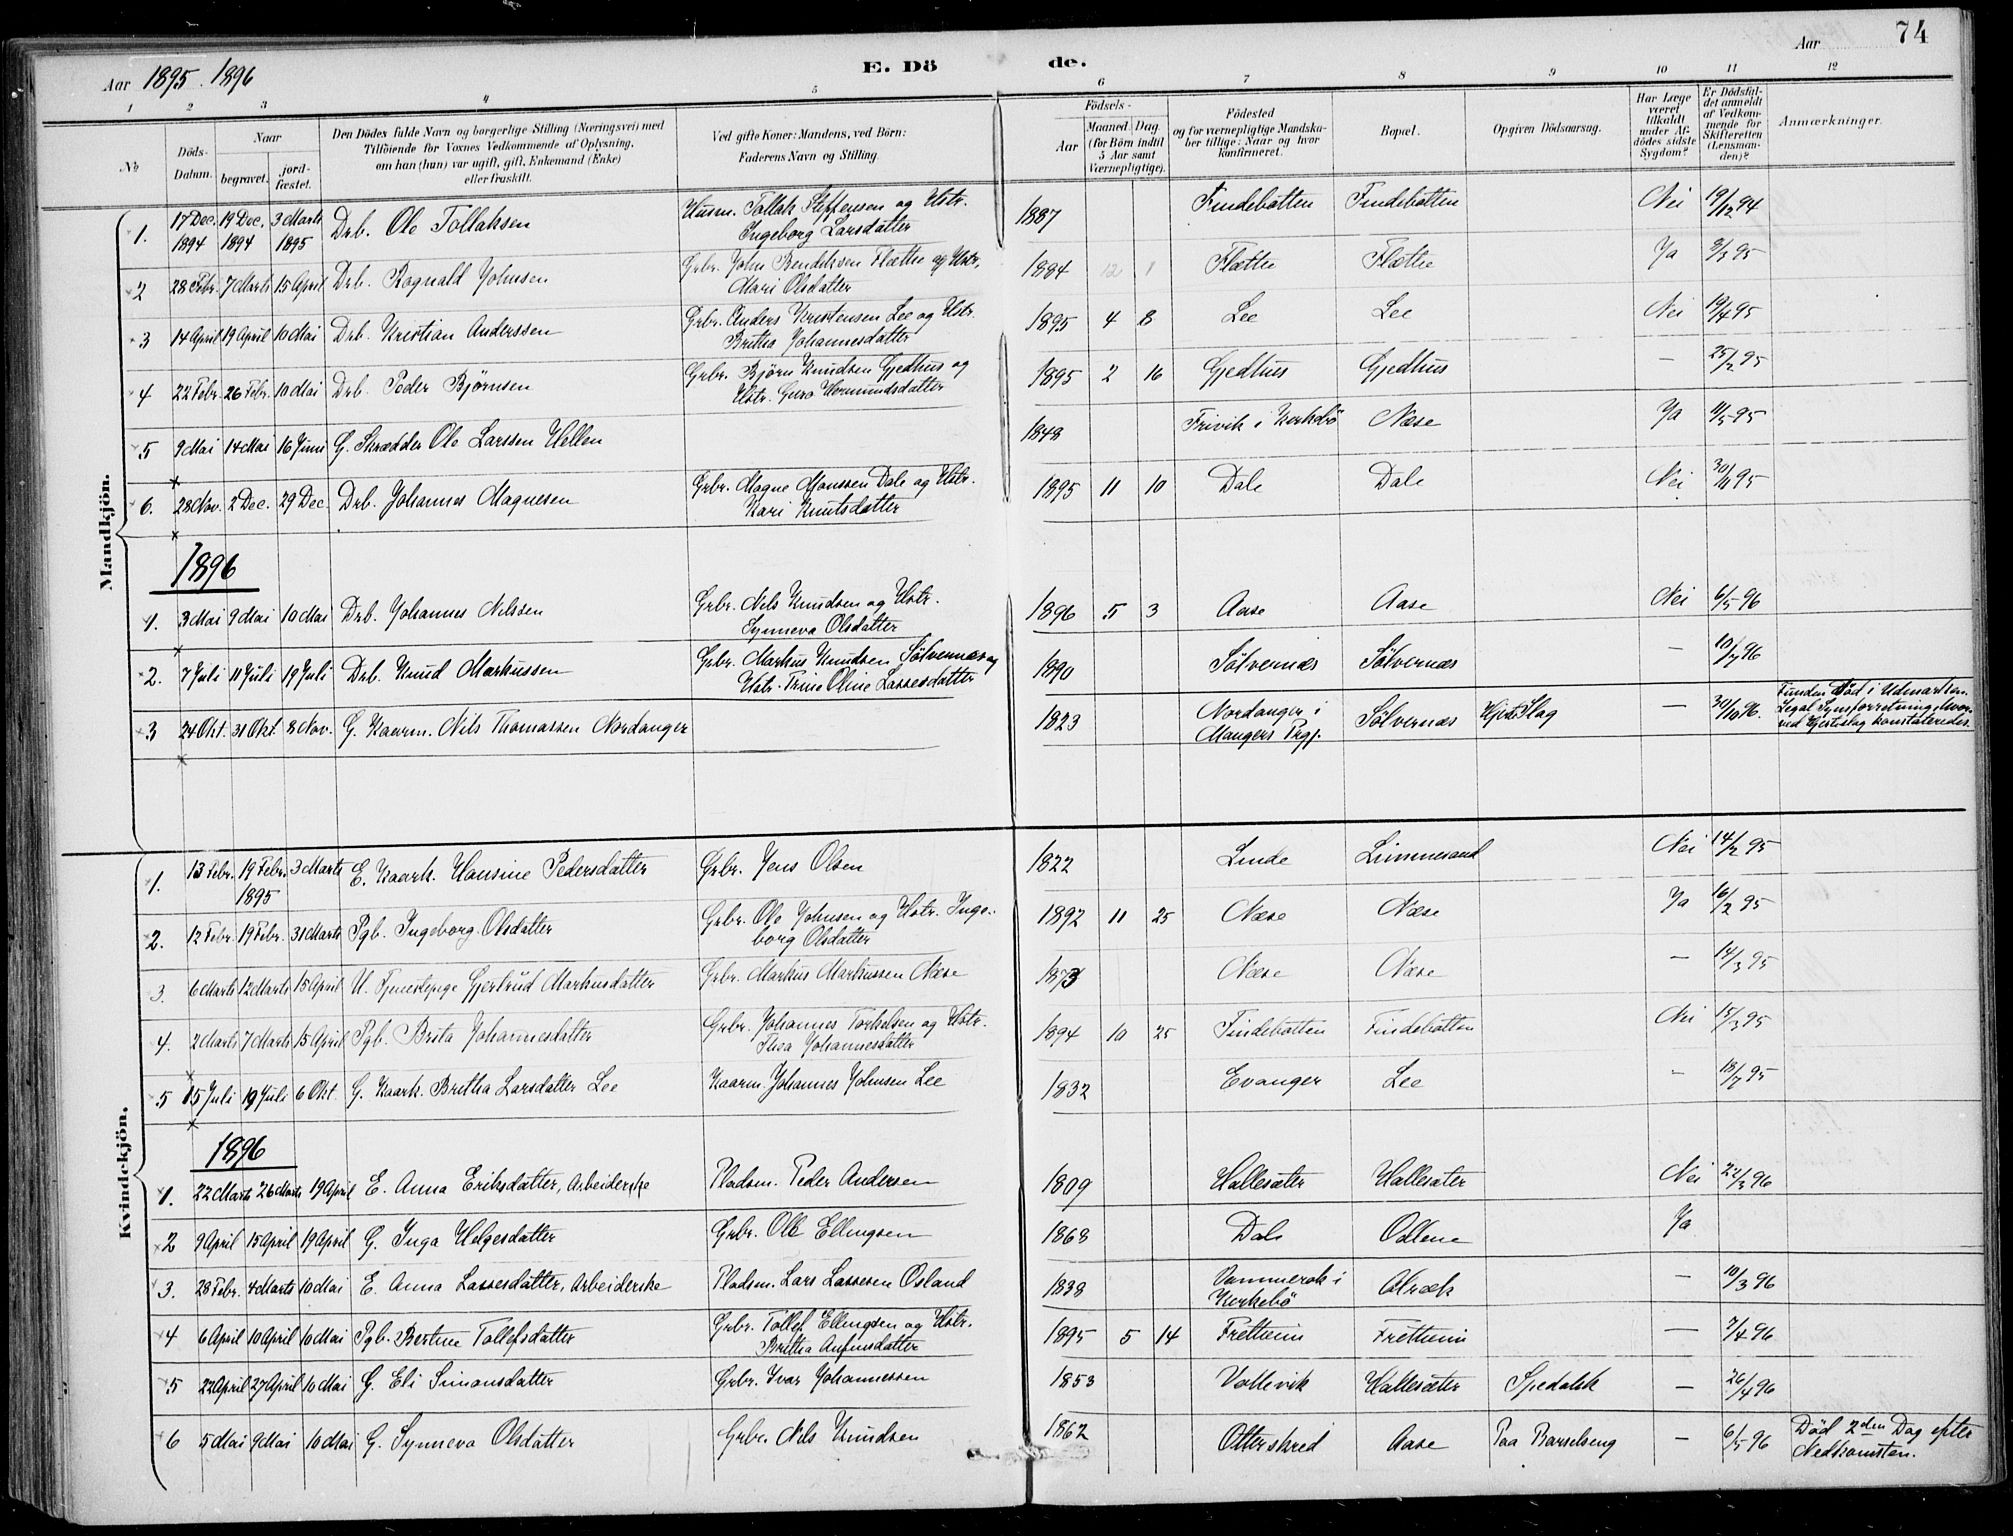 Aar 1895. 1896
E. Dö de.
Aar 74
1 2 3 4 5 6 7 8 9 10 11 12
No.
Döds-Datum.
Naar
begravet. jordfæstet.
Den Dödes fulde Navn og borgerlige Stilling (Næringsvei) med Tilföiende for Voxnes Vedkommende af Oplysning, om han (hun) var ugift, gift, Enkemand (Enke) eller fraskilt.
Ved gifte Koner: Mandens, ved Börn: Faderens Navn og Stilling.
Födsels-
Aar Maaned. Dag. (for Börn indtil 5 Aar samt Værnepligtige).
Födested og for værnepligtige Mandskaber tillige: Naar og hvor konfirmeret.
Bopæl.
Opgiven Dödsaarsag.
Har Læge været tilkaldt under Afdödes sidste Sygdom?
Er Dödsfaldet anmeldt af Vedkommende for Skifteretten (Lensmanden)?
Anmærkninger.
Mandkjön.
1. 17 Dec. 1894 19 Dec. 1894 3 Marts 1895 Drb. Ole Tollaksen Husm. Tollak Steffensen og Hstr. Ingeborg Larsdatter 1887 Findebotten Findebotten Nei 19/12 94
2 28 Febr. 7 Marts 15 April Drb. Ragnald Johnsen Grbr. John Bendiksen Flætte og Hstr. Mari Olsdatter 1884 12 1 Flætte Flætte Ya 2/3 95
3 14 April 19 April 10 Mai Drb. Kristian Anderssen Grbr. Anders Kristensen Lee og Hstr. Britha Johannesdatter 1895 4 8 Lee Lee Nei 19/4 95
4 22 Febr. 26 Febr. 10 Mai Drb. Peder Bjørnsen Grbr. Bjørn Knudsen Gjedhus og Hstr. Guro Hermundsdatter 1895 2 16 Gjedhus Gjedhus — 25/2 95
5 9 Mai 14 Mai 16 Juni G. Skrædder Ole Larssen Hellen 1848 Frivik i Kirkebö Næse Ya 11/5 95
6. 28 Nov. 2 Dec. 29 Dec. Drb. Johannes Magnesen Grbr. Magne Monssen Dale og Hstr. Kari Knutsdatter 1895 11 10 Dale Dale Nei 30/11 95
1896
1. 3 Mai 9 Mai 10 Mai Drb. Johannes Nilssen Grbr. Nils Knudsen og Hstr. Synneva Olsdatter 1896 5 3 Aase Aase Nei 6/5 96
2. 7 Juli 11 Juli 19 Juli Drb. Knud Markussen Grbr. Markus Knudsen Sölvernæs og Hstr. Trine Oline Lassesdatter 1890 Sölvernæs Sölvernæs — 10/7 96
3 24 Okt. 31 Okt. 8 Nov. G. Kaarm. Nils Thomassen Nordanger 1823 Nordanger i Mangers Prgj. Sölvernæs Hjerteslag — 30/10 96. Funden död i Udmarken. Legal Synforretning, hvorved Hjertslag konstateredes.
Kvindekjön.
1. 13 Febr. 19 Febr. 1895 3 Marts E. Kaark. Hansine Pedersdatter Grbr. Jens Olsen 1822 Linde Limmesand Nei 14/2 95
2. 12 Febr. 19 Febr. 31 Marts Pgb. Ingeborg Olsdatter Grbr. Ole Johnsen og Hstr. Ingeborg Olsdatter 1892 11 25 Næse Næse Ya 16/2 95
3. 6 Marts 12 Marts 15 April U. Tjenestepige Gjertrud Markusdatter Grbr. Markus Markussen Næse 1873 Næse Næse — 14/3 95
4. 2 Marts 7 Marts 15 April Pgb. Brita Johannesdatter Grbr. Johannes Torkelsen og Hstr. Thea Johannesdatter 1894 10 25 Findebotten Findebotten Nei 15/3 95
5 15 Juli 19 Juli 6 Okt. G. Kaark. Britha Larsdatter Lee Kaarm. Johannes Johnsen Lee 1832 Evanger Lee — 18/7 95
1896
1. 22 Marts 26 Marts 19 April E. Anna Eriksdatter, Arbeiderske Pladsm. Peder Andersen 1809 Hallesæter Hallesæter Nei 22/3 96
2 9 April 15 April 19 April G. Inga Helgesdatter Grbr. Ole Ellingsen 1868 Dale Odlene Ya
3. 28 Febr. 4 Marts 10 Mai E. Anna Lassesdatter, Arbeiderske Pladsm. Lars Lassesen Osland 1838 Vammerak i Kirkebö Alræk — 10/3 96
4 6 April 10 April 10 Mai Pgb. Bertine Tollefsdatter Grbr. Tollef Ellingsen og Hstr. Britha Anfinsdatter 1895 5 14 Fretheim Fretheim — 7/4 96
5 22 April 27 April 10 Mai G. Eli Simonsdatter Grbr. Ivar Johannessen 1853 Vallevik Hallesæter Spedalsk — 26/4 96
6 5 Mai 9 Mai 10 Mai G. Synneva Olsdatter Grbr. Nils Knudsen 1862 Otterskred Aase Paa Barselseng — 6/5 96 Död 2den Dag efter Nedkomsten.